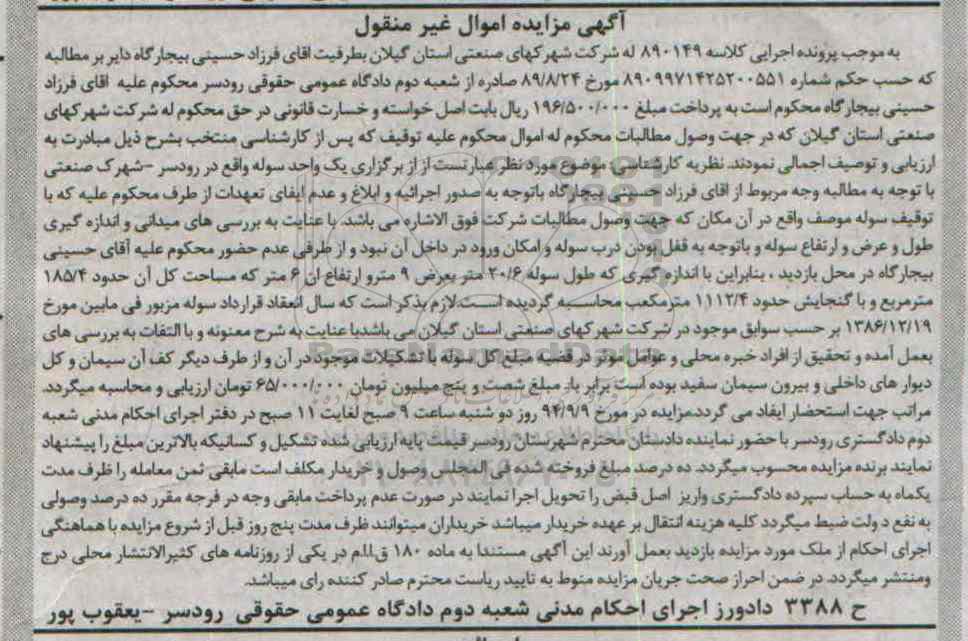 آگهی مزایده اموال غیر منقول
به موجب پرونده اجرایی کلاسه ۸۹۰۱۴۹ له شرکت شهرکهای صنعتی استان گیلان بطرفیت اقای فرزاد حسینی بیجارگاه دایر بر مطالبه
که حسب حکم شماره ۸۹۰۹۹۷۱۴۲۵۲۰۰۵۵۱ مورخ ۸۹/۸/۲۴ صادره از شعبه دوم دادگاه عمومی حقوقی رودسر محکوم علیه اقای فرزاد
حسینی بیجارگاه محکوم است به پرداخت مبلغ ۱۹۶/۵۰۰/۰۰۰ ریال بابت اصل خواسته و خسارت قانونی در حق محکوم له شرکت شهرکهای
صنعتی استان گیلان که در جهت وصول مطالبات محکوم له اموال محکوم علیه توقیف که پس از کارشناسی منتخب بشرح ذیل مبادرت به
ارزیابی و توصیف اجمالی نمودند. نظریه کارشناسی موضوع مورد نظر عبارتست از از برگزاری یک واحد سوله واقع در رودسر –شهرک صنعتی
با توجه به مطالبه وجه مربوط از اقای فرزاد حسینی بیجارگاه باتوجه به صدور اجرائیه و ابلاغ و عدم ایفای تعهدات از طرف محکوم علیه که با
توقیف سوله موصف واقع در آن مکان که جهت وصول مطالبات شرکت فوق الاشاره می باشد با عنایت به بررسی های میدانی و اندازه گیری
طول و عرض و ارتفاع سوله و باتوجه به قفل بودن درب سوله و امکان ورود در داخل آن نبود و از طرفی عدم حضور محکوم علیه آقای حسینی
بیجارگاه در محل بازدید ، بنابراین با اندازه گیری که طول سوله ۲۰/۶ متر بعرض ۹ مترو ارتفاع ان ۶ متر که مساحت کل آن حدود ۱۸۵/۴
مترمربع و با گنجایش حدود ۱۱۱۲/۴ مترمکعب محاسبه گردیده است.لازم بذکر است که سال انعقاد قرارداد سوله مزبور فی مابین مورخ
۱۳۸۶/۱۲/۱۹ بر حسب سوابق موجود در شرکت شهرکهای صنعتی استان گیلان می باشدبا عنایت به شرح معنونه و با التفات به بررسی های
بعمل آمده و تحقیق از افراد خبره محلی و عوامل موثر در قضیه مبلغ کل سوله با تشکیلات موجود در آن و از طرف دیگر کف آن سیمان و کل
دیوار های داخلی و بیرون سیمان سفید بوده است برابر با: مبلغ شصت و پنج میلیون تومان ۶۵/۰۰۰/۰۰۰ تومان ارزیابی و محاسبه میگردد.
مراتب جهت استحضار ایفاد می گردد.مزایده در مورخ ۹۴/۹/۹ روز دو شنبه ساعت ۹ صبح لغایت ۱۱ صبح در دفتر اجرای احکام مدنی شعبه
دوم دادگستری رودسر با حضور نماینده دادستان محترم شهرستان رودسر قیمت پایه ارزیابی شده تشکیل و کسانیکه بالاترین مبلغ را پیشنهاد
نمایند برنده مزایده محسوب میگردد. ده درصد مبلغ فروخته شده فی المجلس وصول و خریدار مکلف است مابقی ثمن معامله را ظرف مدت
یکماه به حساب سپرده دادگستری واریز اصل قبض را تحویل اجرا نمایند در صورت عدم پرداخت مابقی وجه در فرجه مقرر ده درصد وصولی
به نفع دولت ضبط میگردد کلیه هزینه انتقال بر عهده خریدار میباشد خریداران میتوانند ظرف مدت پنج روز قبل از شروع مزایده با هماهنگی
اجرای احکام از ملک مورد مزایده بازدید بعمل آورند این آگهی مستندا به ماده ۱۸۰ ق.ا.ا.م در یکی از روزنامه های کثیرالانتشار محلی درج
ومنتشر میگردد. در ضمن احراز صحت جریان مزایده منوط به تایید ریاست محترم صادر کننده رای میباشد.
ح ۳۳۸۸ دادورز اجرای احکام مدنی شعبه دوم دادگاه عمومی حقوقی رودسر –یعقوب پور